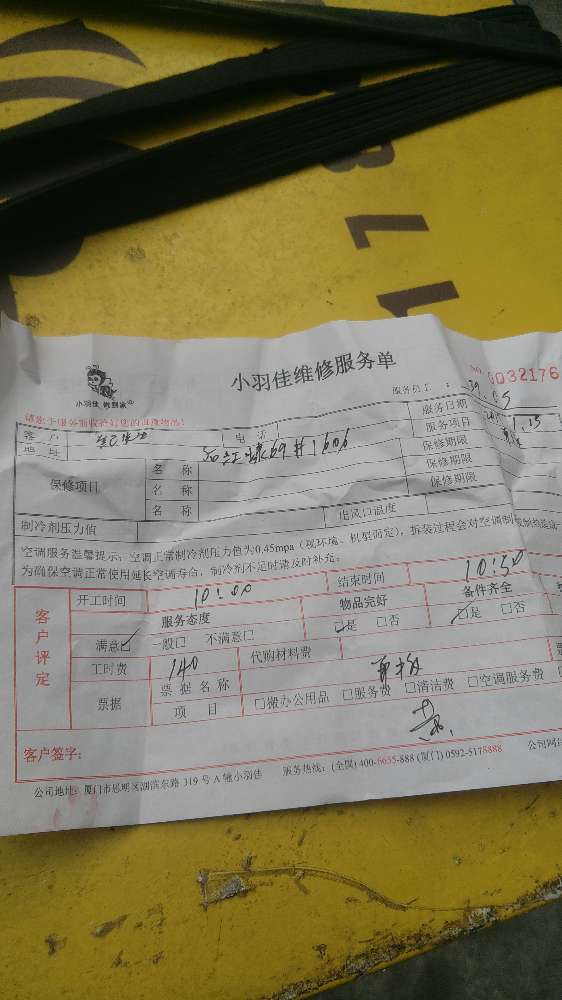 小羽佳维修服务单
NO. 0032176
小羽佳 俐到家®
服务员工：
服务日期
客户
电话
地址
服务项目
保修项目
名称
保修期限
名称
保修期限
名称
保修期限
制冷剂压力值
出风口温度
空调服务温馨提示：空调正常制冷剂压力值为0.45mpa（视环境、机型而定），拆装过程会对空调制
为确保空调正常使用延长空调寿命，制冷剂不足时请及时补充。
客户评定
开工时间 10:00
结束时间 10:30
服务态度
物品完好
备件齐全
满意☑ 一般口 不满意口
☑是 □否
☑是 □否
工时费 140
代购材料费
票据
票据名称
项目
□搬办公用品 □服务费 □清洁费 □空调服务费
客户签字：
黄
公司地址：厦门市思明区湖滨东路 319 号 A 幢小羽佳
服务热线：(全国) 400-6655-888 (厦门) 0592-5178888
公司网